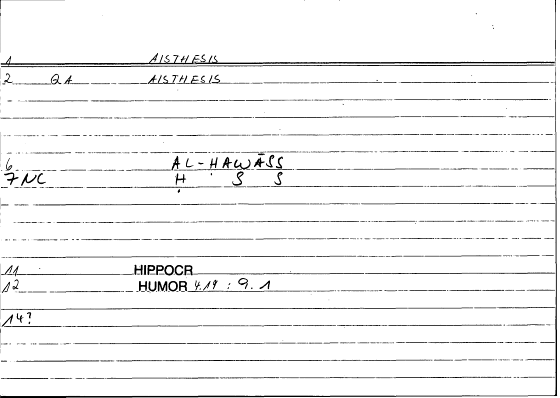 1 AISTHESIS
2 QA AISTHESIS
6 AL-ḤAWĀSS
7 NC Ḥ S S
11 HIPPOCR
12 HUMOR 4.19 : 9.1
14?